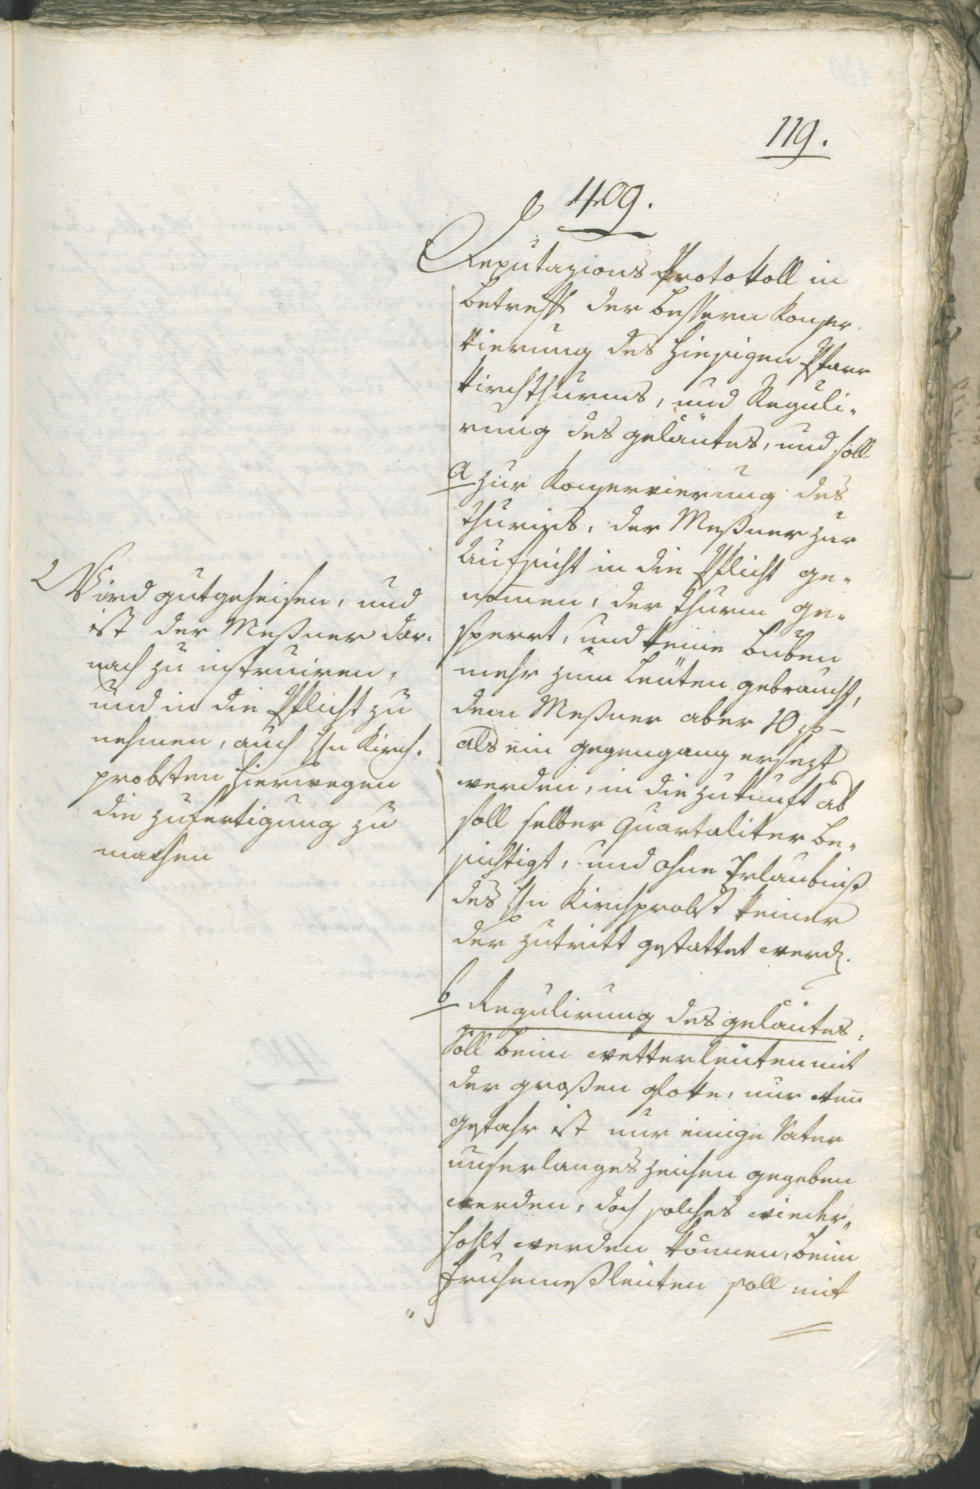 119.
409.
Deputazions Protokoll in
betreff der bessern Konser¬
vierung des hiesigen Pfarr
kirchthurms, und Reguli¬
rung des geläutes, und soll
a zur Konservierung des
thurms, der Meßner zur
Aufsicht in die Pflicht ge¬
nommen, der thurm ge¬
sperrt, und keine buben
mehr zum leuten gebraucht,
dem Meßner aber 10 f –
als ein gegengang ersezt
werden, in die zukunft ab
soll selber Quartaliter be¬
sichtigt, und ohne Erlaubniß
des Hn Kirchprobst keiner
der zutritt gestattet werd.
b Regulirung des geläutes:
Soll beim wetterleuten mit
der großen gloke, nur wen
gefahr ist nur einige Vater
unser langes zeichen gegeben
werden, doch solches wieder¬
hohlt werden können, beim
fruhemeßleuten soll mit
Wird gutgeheisen, und
ist der Meßner dar¬
nach zu instruiren,
und in die Pflicht zu
nehmen, auch Hn Kirch¬
probsten hierwegen
die zufertigung zu
machen